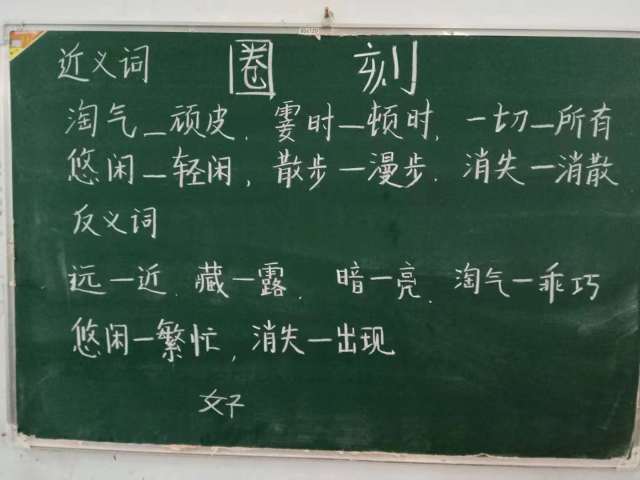 近义词 圈 刻
淘气—顽皮、霎时—顿时、一切—所有
悠闲—轻闲，散步—漫步、消失—消散
反义词
远—近、藏—露、暗—亮、淘气—乖巧
悠闲—繁忙，消失—出现
好